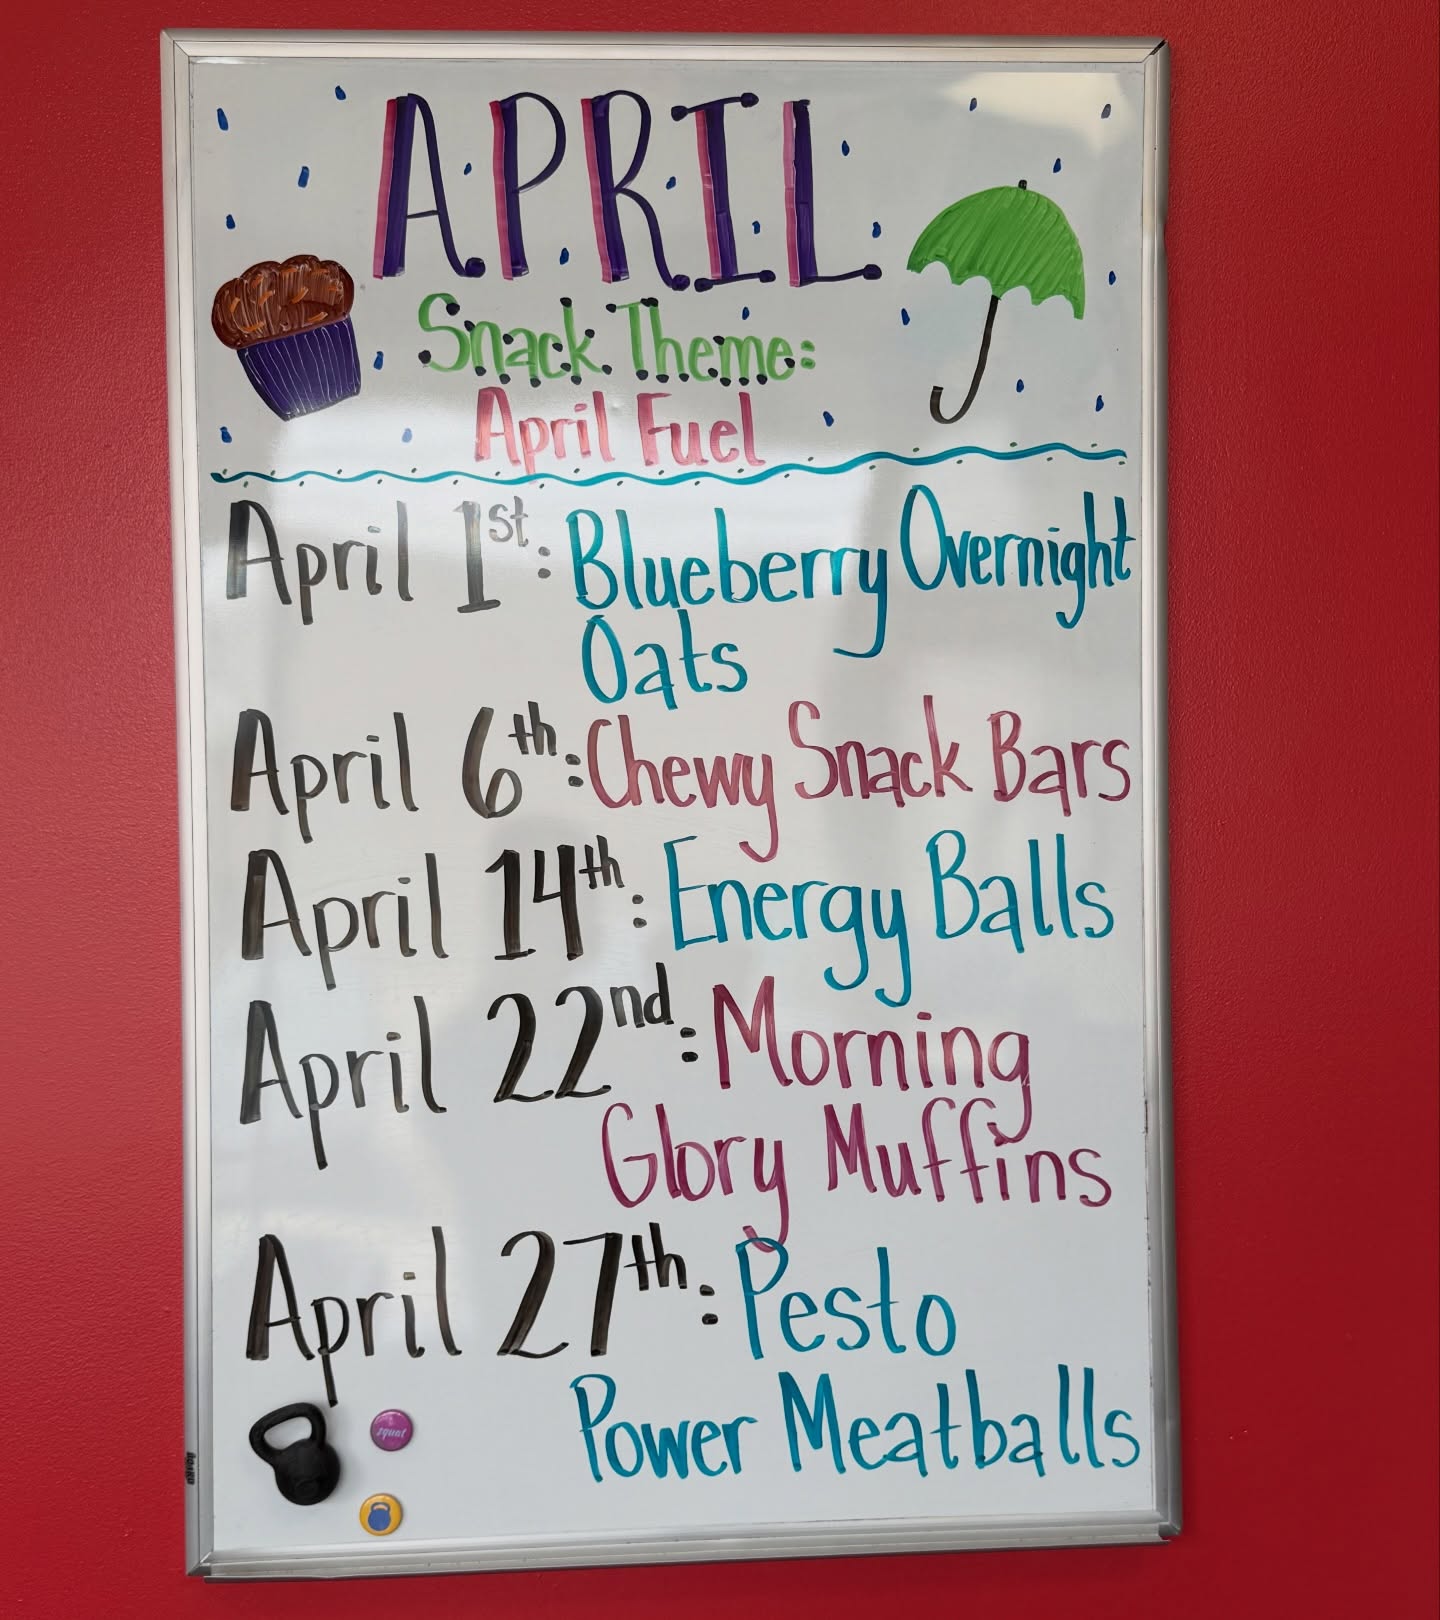 APRIL
Snack Theme:
April Fuel
April 1st: Blueberry Overnight
Oats
April 6th: Chewy Snack Bars
April 14th: Energy Balls
April 22nd: Morning
Glory Muffins
April 27th: Pesto
Power Meatballs
squat